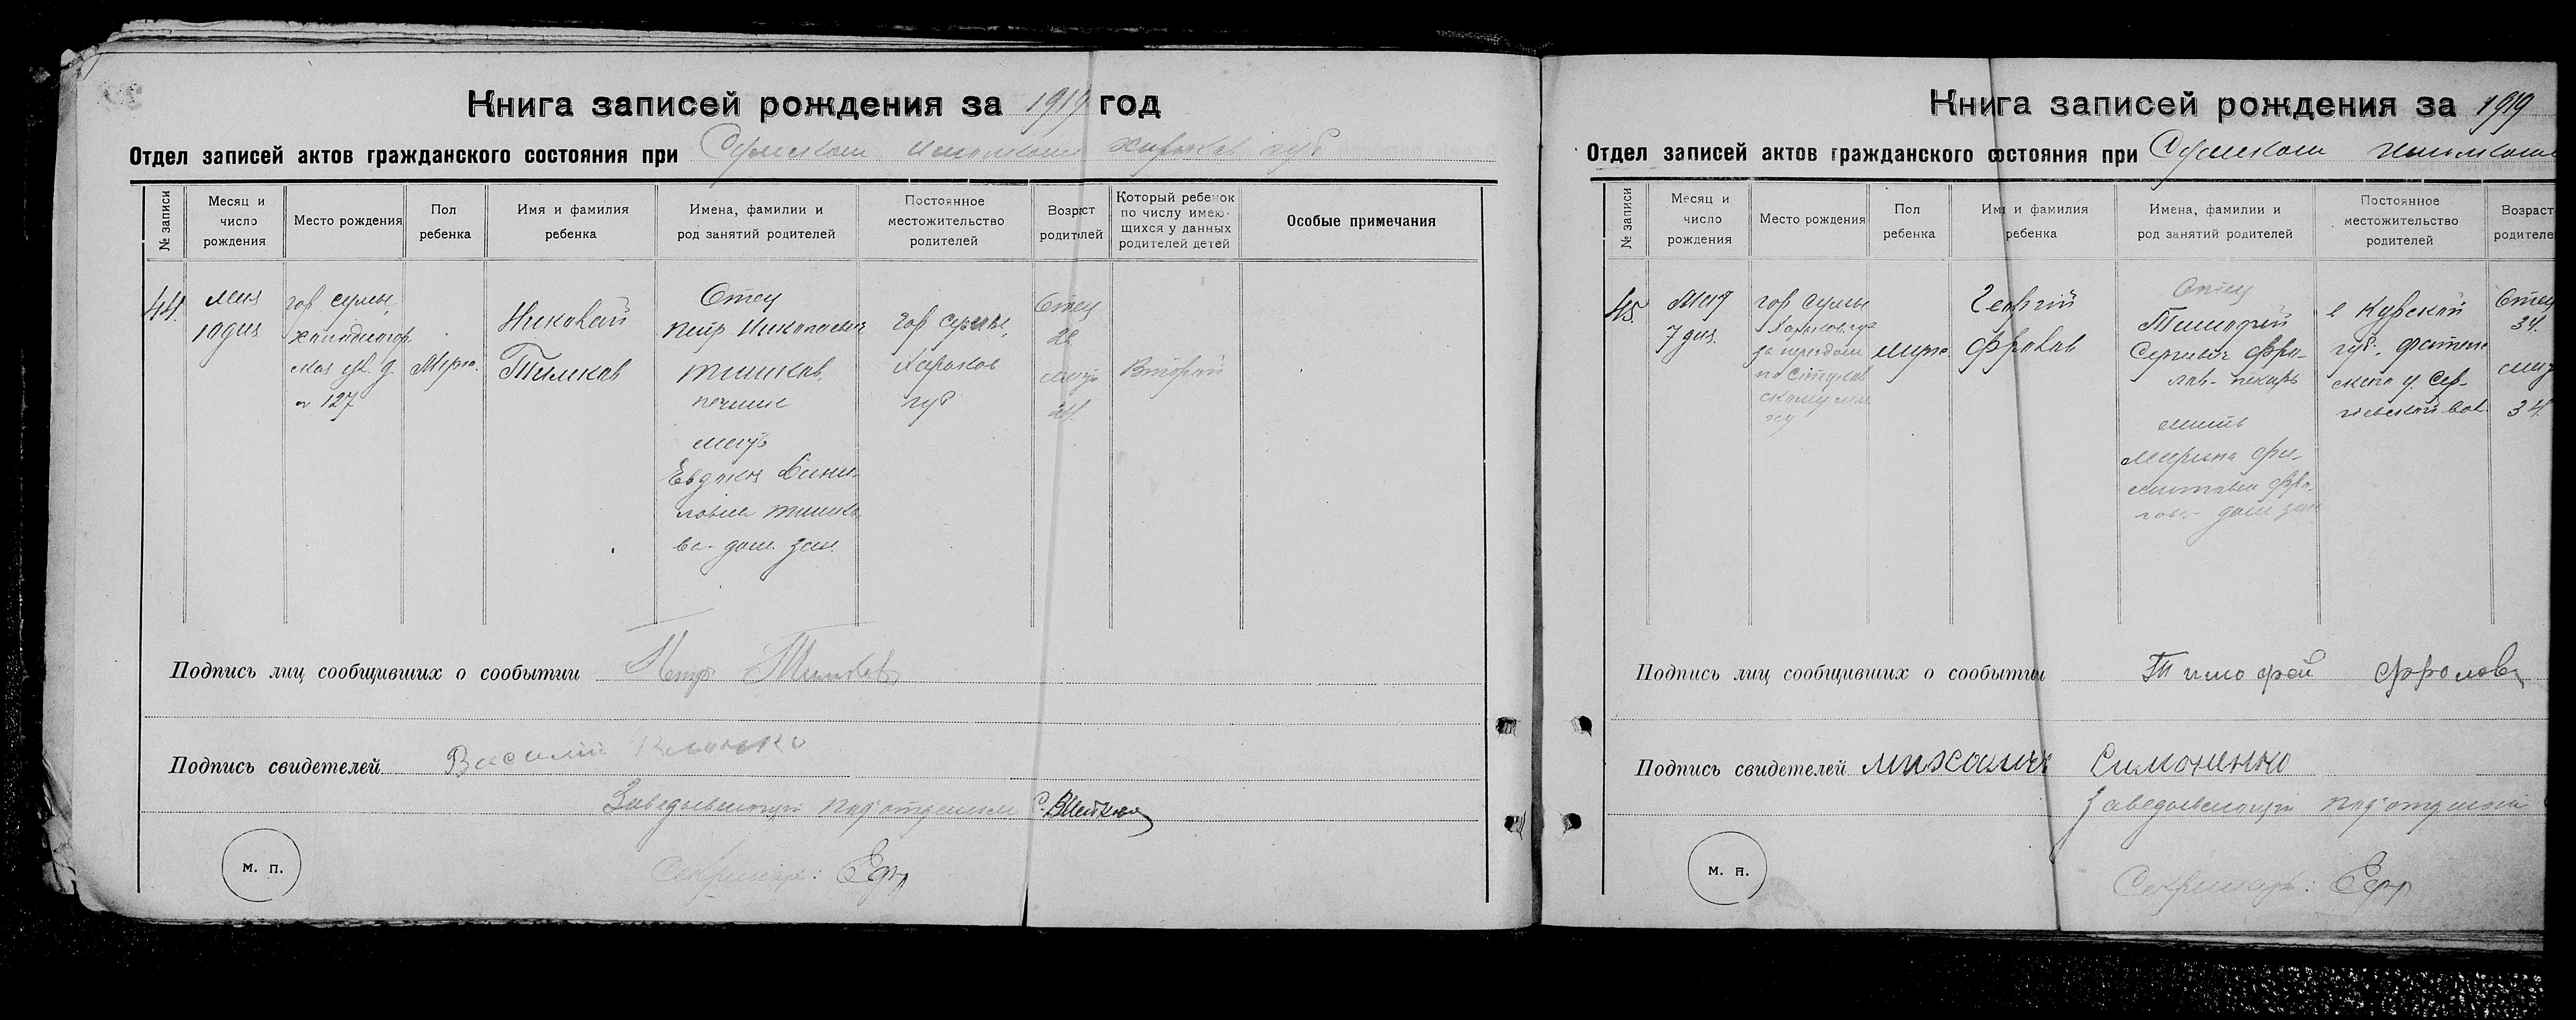 Книга записей рождения за 1919 год
Отдел записей актов гражданского состояния при Сумском Харьков губ
№ записи
Месяц и число рождения
Место рождения
Пол ребенка
Имя и фамилия ребенка
Имена, фамилии и род занятий родителей
Постоянное местожительство родителей
Возраст родителей
Который ребенок по числу имею-щихся у данных родителей детей
Особые примечания
44.
мая
19 дня
гор Сумы,
д.
№ 127
Мужс.
Николай
Тимков
Отец
Петр Николаевич
Тимков,
мать
Евдокия Дани-
ловна Тимко
ва - дом. зан.
гор Сумы,
Харьков
губ
Отец
26
мать
24.
Второй
Подпись лиц сообщивших о сообытии Петр Тимков
Подпись свидетелей Василий
Заведывающий под'отделом
м. п.
Секретарь:
Книга записей рождения за 1919
Отдел записей актов гражданского состояния при Сумском
№ записи
Месяц и число рождения
Место рождения
Пол ребенка
Имя и фамилия ребенка
Имена, фамилии и род занятий родителей
Постоянное местожительство родителей
Возраст родителе
45.
мая
7 дня.
гор Сумы
Харьков. губ
за переездом
мужс.
Георгий
Фролов
Отец
Тимофей
Сергеевич Фро-
лов - пекарь
мать
Марина Фи-
Фро-
лова - дом зан
Курской
губ. Фатеж
ского у. Сер-
гиевской вол.
Отец
34.
мать
34.
Подпись лиц сообщивших о сообытии Тимофей Фролов
Подпись свидетелей Михаилъ Симоненко
Заведывающий под'отделом
м. п.
Секретарь: